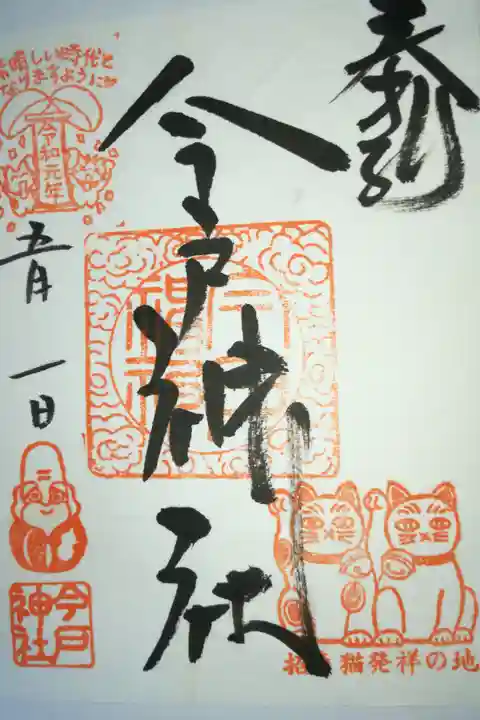 奉拝
今戸神社
素晴しい時代と
なりますように
令和元年
五月
一日
今戸
神社
招き猫発祥の地